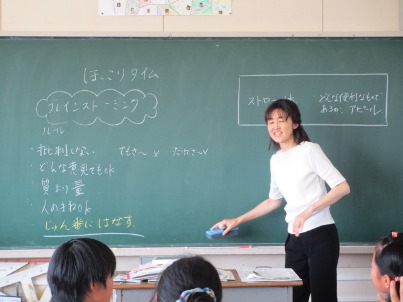 ほっこりタイム
ブレインストーミング
ルール
・批判しない でもさ〜× だってさ〜×
・どんな意見でもok
・質より量
・人のまねok
じゅん番にはなす。
ストロー
どんな便利なもので
あるか、アピール